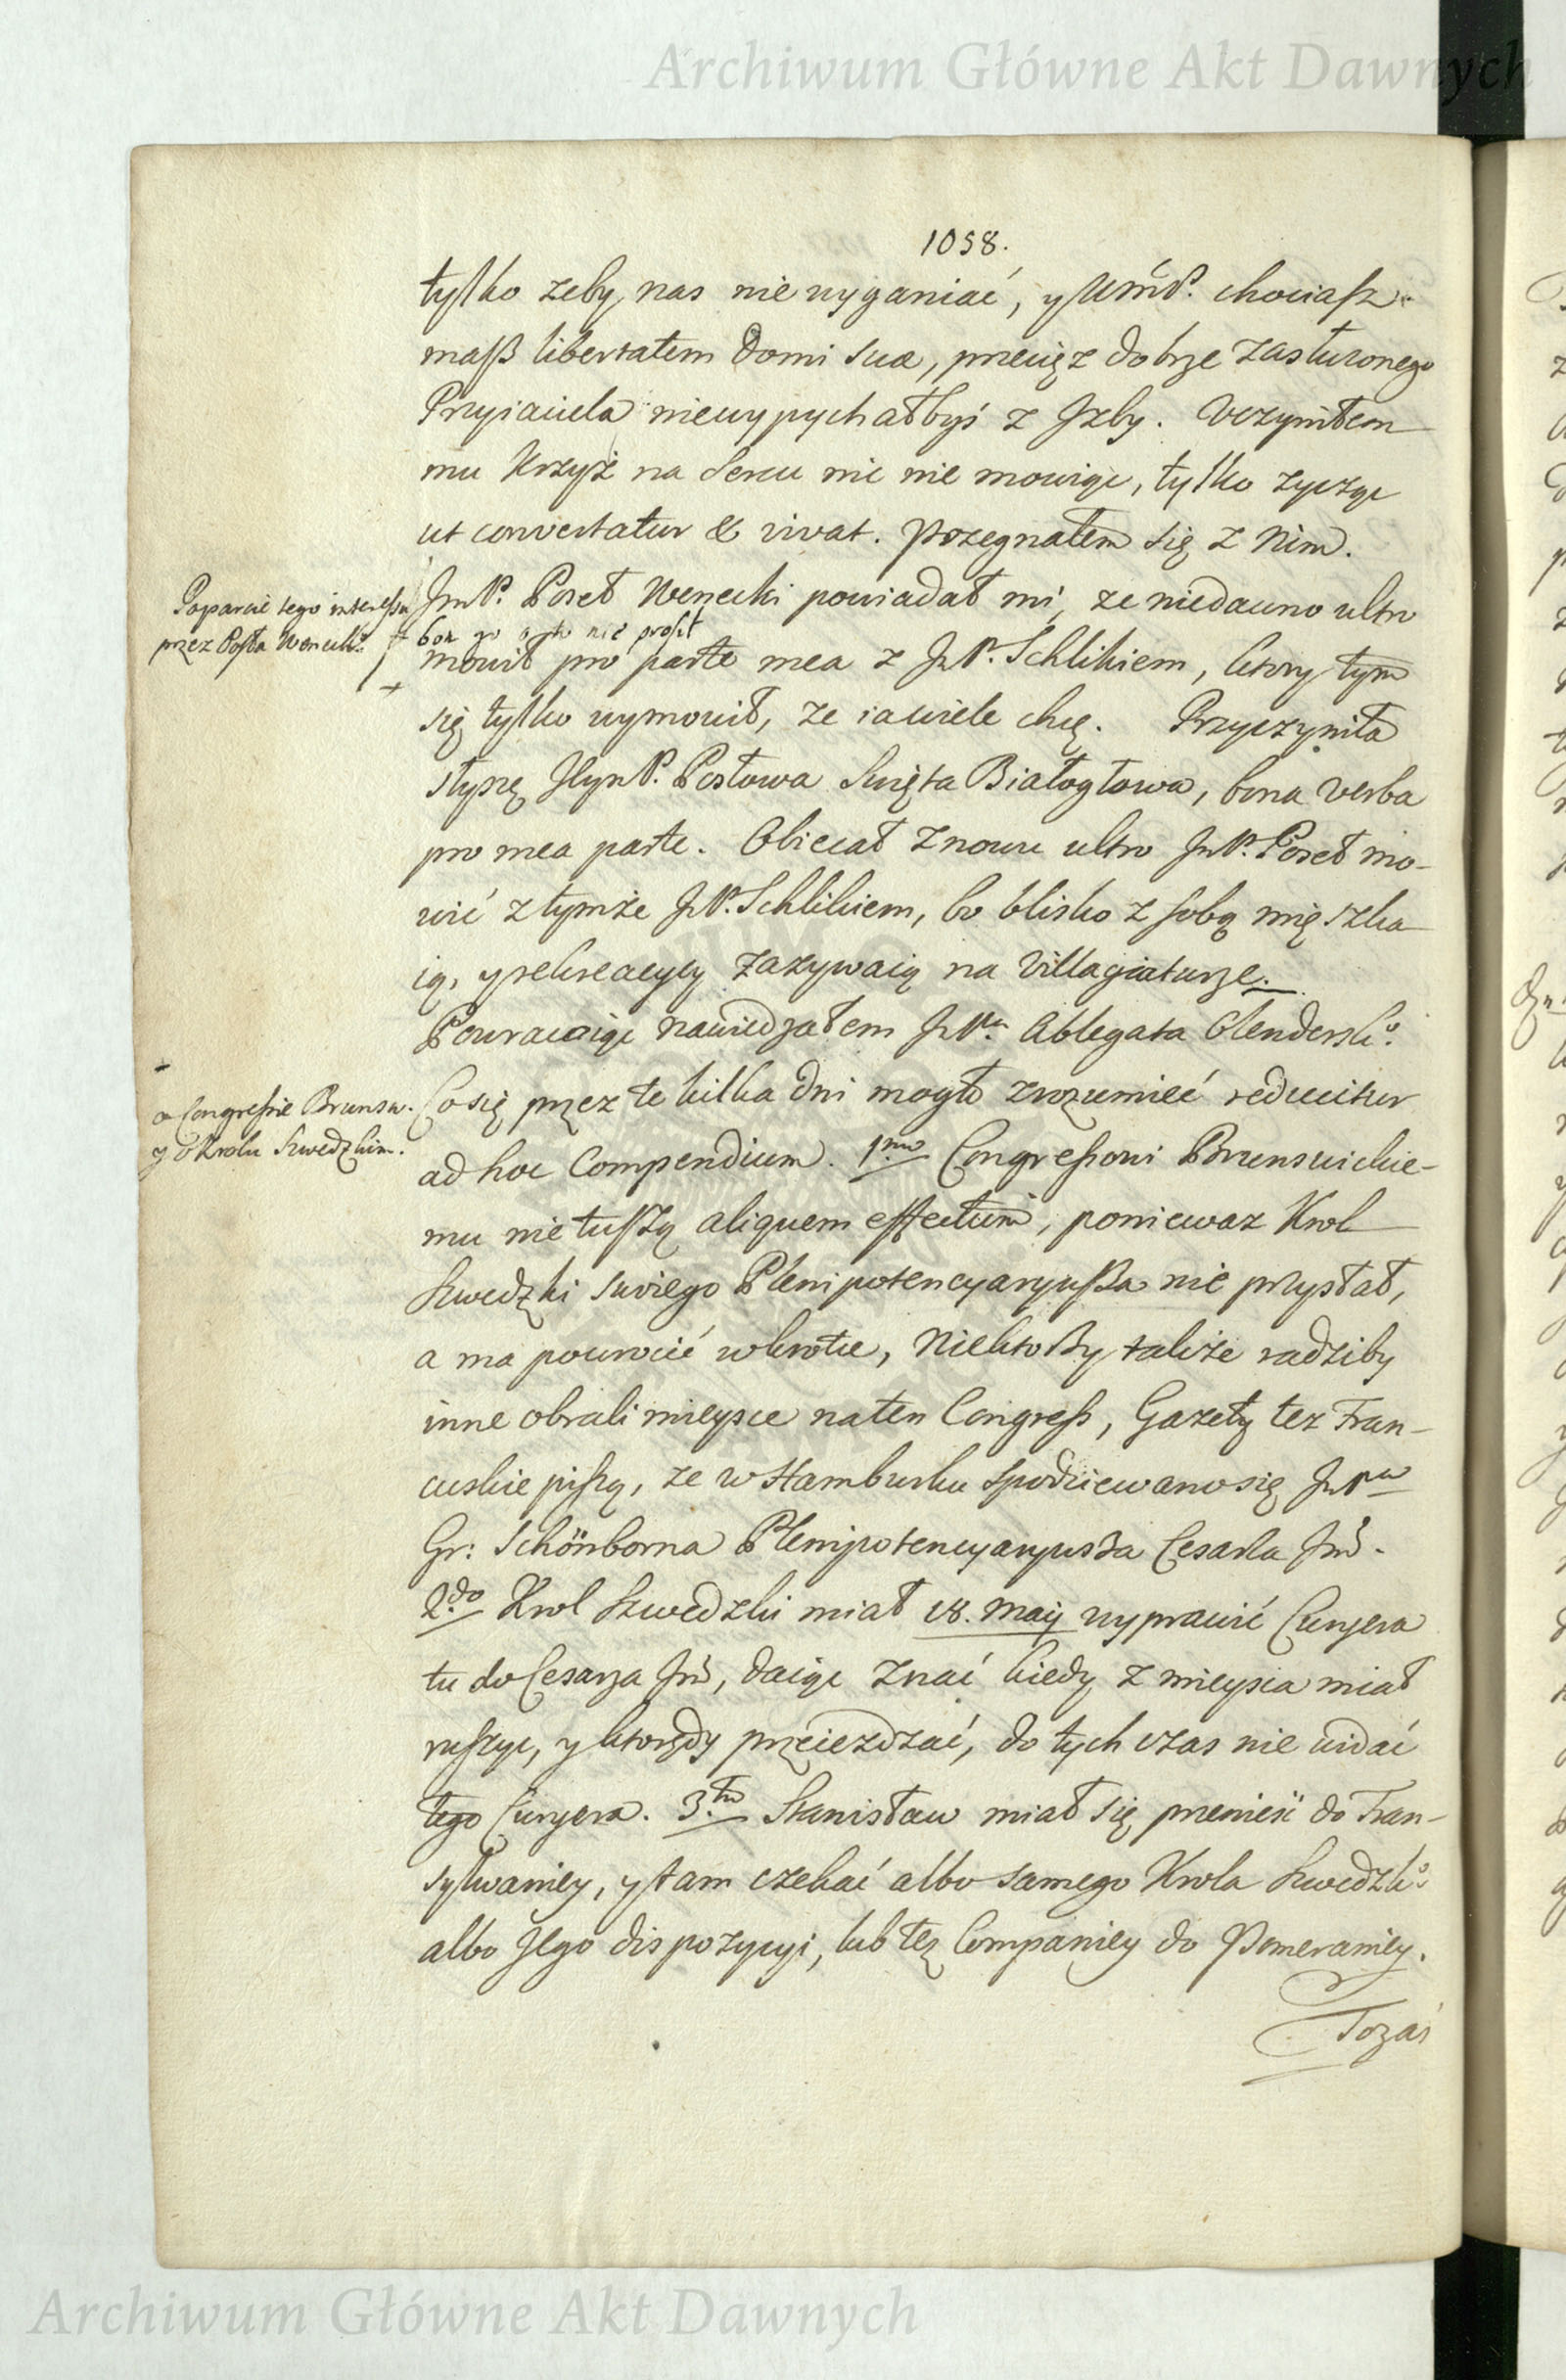 Archiwum Główne Akt Dawnych
1058.
tylko zeby nas nie wyganiać, y WmP. chociasz
masz libertatem Domi suæ, przecięz dobrze zasłuzonego
Przyiaciela niewypychałbyś z Jzby. Vczyniłem
mu Krzyż na Sercu nic nie mowiąc, tylko zycząc
ut convertatur & vivat. pozegnałem się z Nim.
Poparcie tego interessu
przez Posła Weneckº.
JmP. Poseł Wenecki powiadał mi, ze niedawno ultro
bom go o to nie prosił
mowił pro parte mea z JnP. Schlikiem, ktory tym
się tylko wymowił, ze ia wiele chcę. Przyczyniła
słyszę JeynP. Posłowa Swięta Białogłowa, bona verba
pro mea parte. Obiecał znowu ultro JnP. Poseł mo-
wić z tymże JnP. Schlikiem, bo blisko z sobą mięszka
ią, y rekreacyey zazywaią na Villagiaturze.
Powracaiąc nawiedzałem JnPa. Ablegata Olenderskº.
o Congressie Brunsw.
y o Krolu Szwedzkim.
Co się przez te kilka dni mogło zrozumieć reducitur
ad hoc Compendium. 1mo Congressowi Brunswickie-
mu nie tuszą aliquem effectum, poniewaz Krol
Szwedzki swiego Plenipotencyaryusza nie przysłał,
a ma powrocić wkrotce, Niektorzy takze radziby
inne obrali mieysce na ten Congress, Gazety tez Fran-
cuskie piszą, ze w Hamburku spodziewano się JnPa
Gr: Schönborna Plenipotencyaryusza Cesarza Jmś.
2do Krol Szwedzki miał 18. Maij wyprawić Curyera
tu do Cesarza Jmś, daiąc znać kiedy z mieysca miał
ruszyc, y ktorędy przeiezdzać, do tych czas nie widać
tego Curyera. 3tio Stanisław miał się przenieść do Tran-
sylwaniey, y tam czekać albo samego Krola Szwedzkº
albo Jego dispozycyi, lub tez Companiey do Pomeraniey.
Tozaś
Archiwum Główne Akt Dawnych